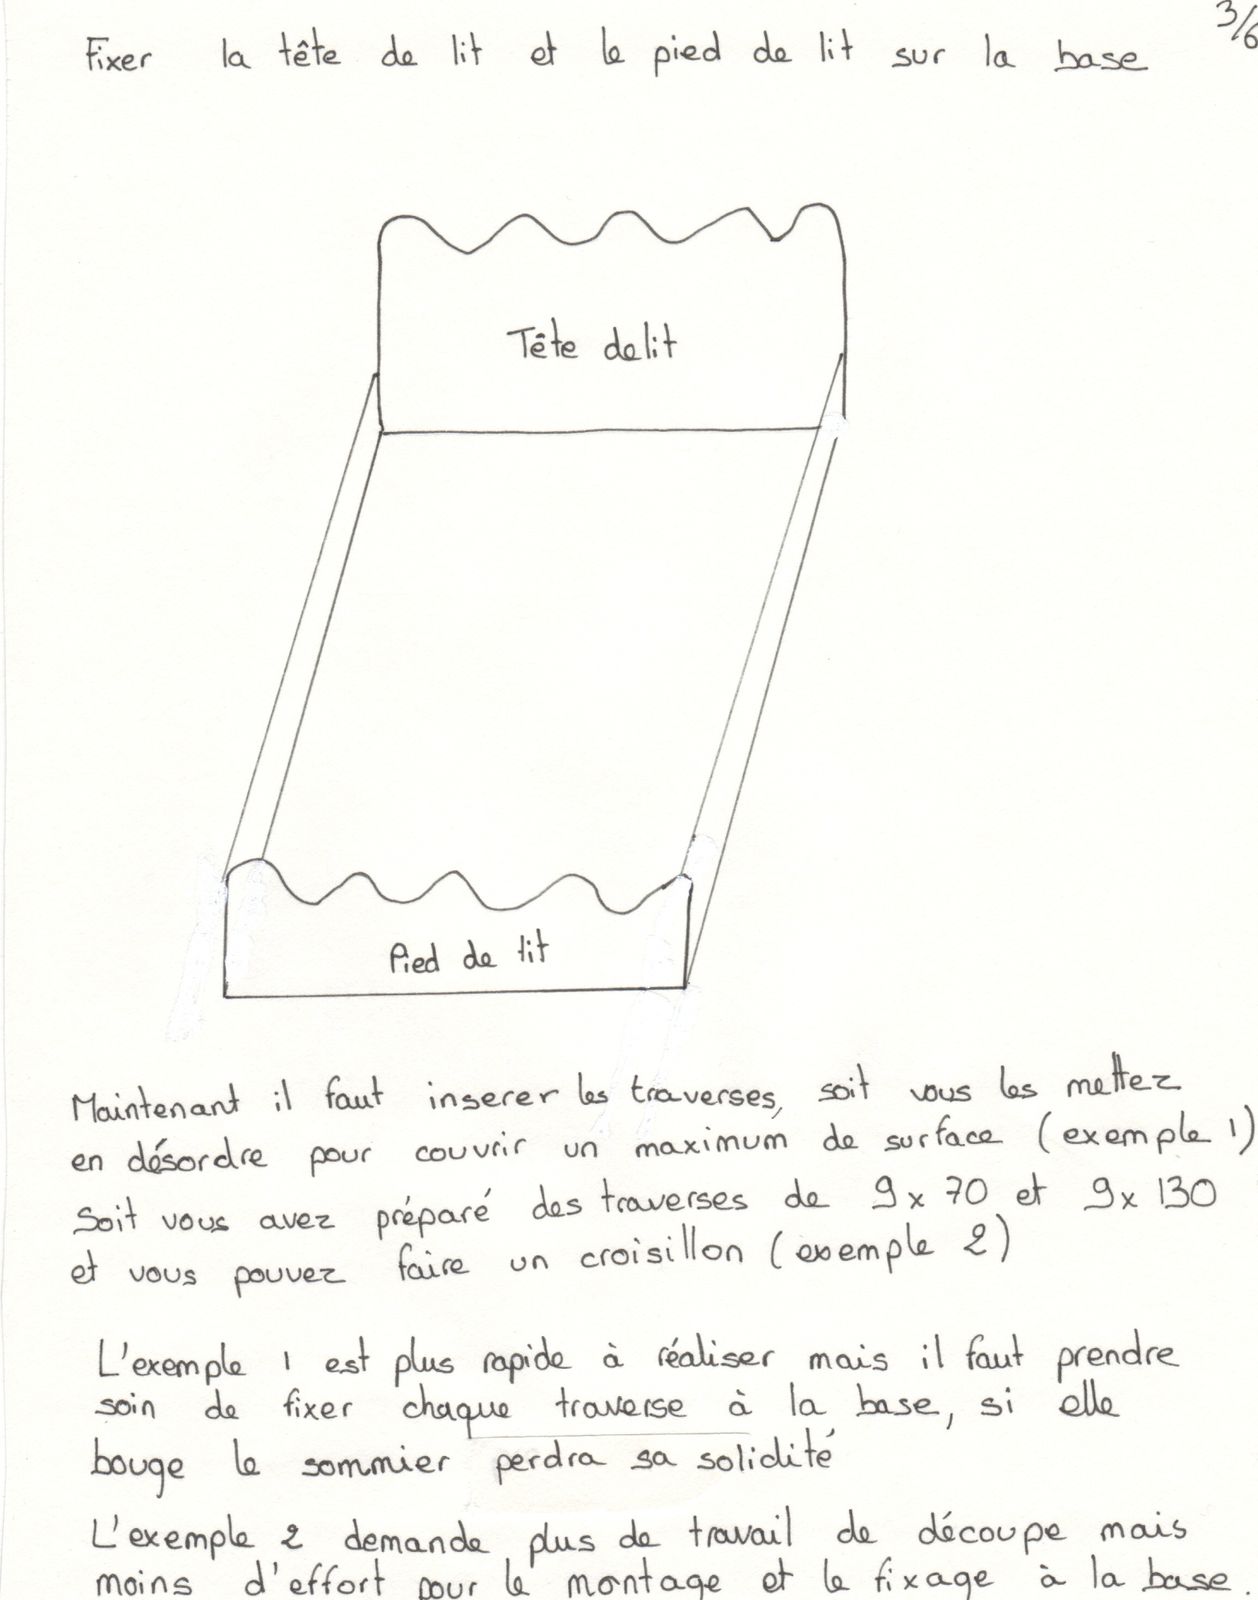 3/6
Fixer la tête de lit et le pied de lit sur la base
Tête de lit
Pied de lit
Maintenant il faut inserer les traverses, soit vous les mettez
en désordre pour couvrir un maximum de surface (exemple 1)
Soit vous avez préparé des traverses de 9x70 et 9x130
et vous pouvez faire un croisillon (exemple 2)
L'exemple 1 est plus rapide à réaliser mais il faut prendre
soin de fixer chaque traverse à la base, si elle
bouge le sommier perdra sa solidité
L'exemple 2 demande plus de travail de découpe mais
moins d'effort pour le montage et le fixage à la base.